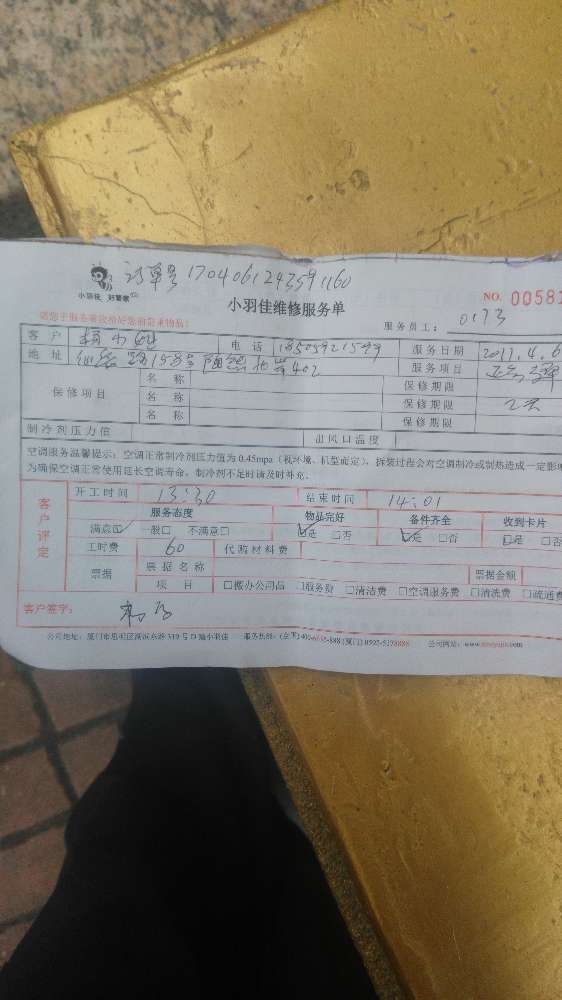 订单号 1704061243591160
小羽佳 好管家
小羽佳维修服务单
NO. 00581
服务员工： 0173
客户 电话 18505921599 服务日期 2017.4.6
地址 158号 402 服务项目
保修项目 名称 保修期限
名称 保修期限
名称 保修期限
制冷剂压力值 出风口温度
空调服务温馨提示：空调正常制冷剂压力值为0.45mpa（视环境、机型而定），拆装过程会对空调制冷或制热造成一定影响
为确保空调正常使用延长空调寿命，制冷剂不足时请及时补充。
客户评定
开工时间 13:30 结束时间 14:01
服务态度 物品完好 备件齐全 收到卡片
满意☑ 一般□ 不满意□ ☑是 □否 ☑是 □否 □是 □否
工时费 60 代购材料费
票据 票据名称 票据金额
项目 □搬办公用品 □服务费 □清洁费 □空调服务费 □清洗费 □疏通费
客户签字：
公司地址：厦门市思明区湖滨东路319号 服务热线：
公司网址：